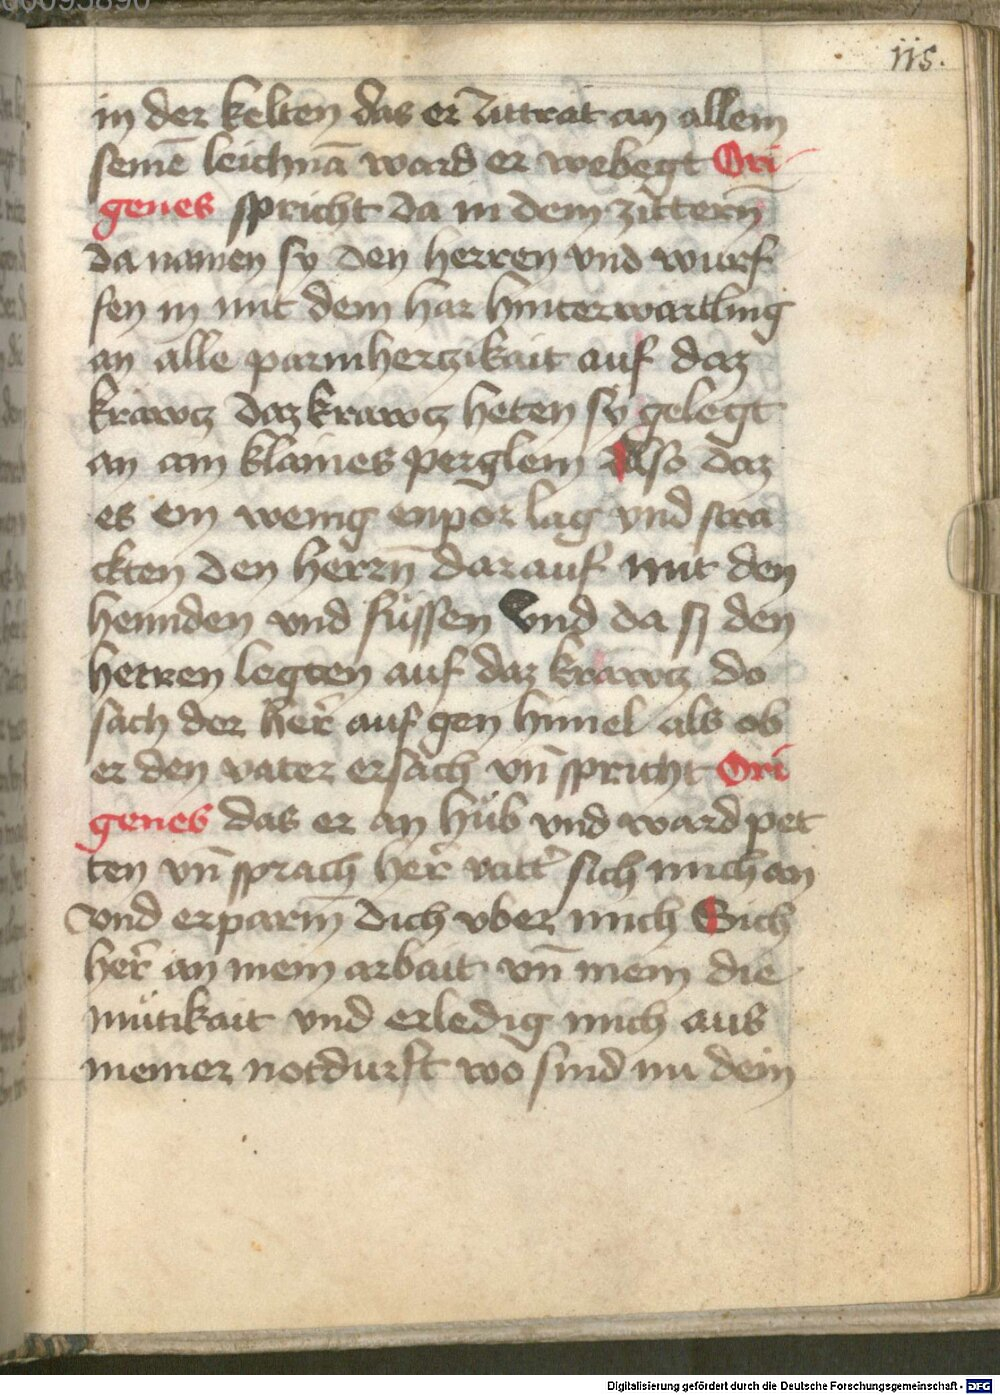 115.
in der kelten das er zittrat an allem
seinē leichnā ward er webegt Ori
genes spricht da in dem zittern̄
da namen sy den herren vnd wurf
fen in mit dem har hinterwärtling
an alle parmhertzikait auf daz
kräwcz daz krawcz heten sy gelegt
an ain klaines perglein Also daz
es ein wenig enpor lag vnd stra
ckten den herrn̄ darauf mit den
hennden vnd füssen Vnd da sy den
herren legten auf daz kräwcz do
sach der her̄ auf gen himel als ob
er den vater ersach vn̄ spricht Ori
genes das er an hüb vnd ward pet
ten vn̄ sprach her̄ vatt̄ sich mich an
vnd erparm̄ dich vber mich Sich
her̄ an mein arbait vn̄ mein die
mütikait vnd erledig mich aus
meiner notdurft wo sind nu dein
Digitalisierung gefördert durch die Deutsche Forschungsgemeinschaft - DFG